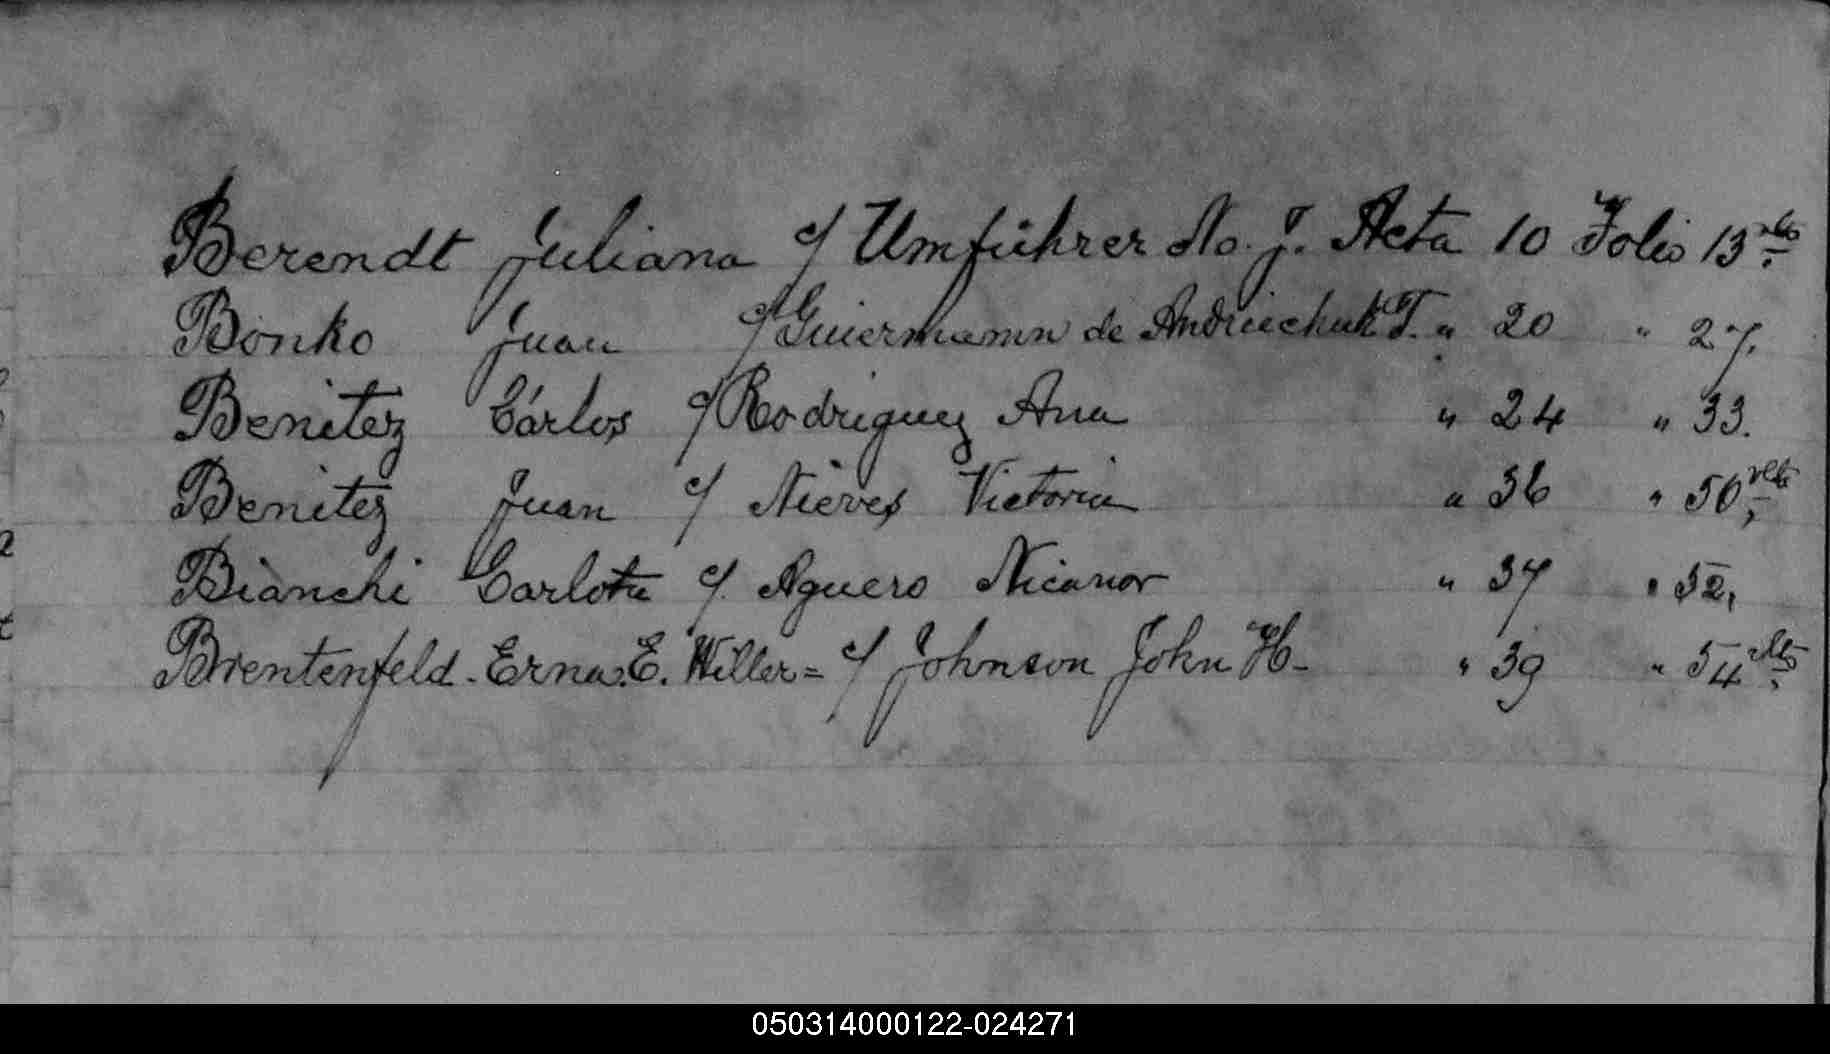 Berendt Juliana c/ Umführer No. J. Acta 10 Folio 13 vlto.
Bonko Juan c/ de Andriechuk T. " 20 " 27.
Benitez Cárlos c/ Rodriguez Ana " 24 " 33.
Benitez Juan c/ Nieves Victoria " 36 " 50 vlto,
Bianchi Carlota c/. Aguero Nicanor " 37 " 52,
Brentenfeld - Erna. E. Willer = c/ Johnson John H- " 39 " 54 vlto.
050314000122-024271